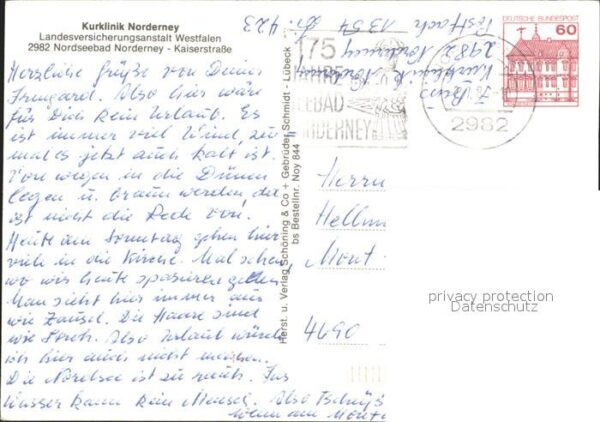 Kurklinik Norderney
Landesversicherungsanstalt Westfalen
2982 Nordseebad Norderney - Kaiserstraße
Herzliche Grüße von Deiner
Irmgard. Also hier wäre
für Dich kein Urlaub. Es
ist immer viel Wind, zu
mal es jetzt auch kalt ist.
Von wegen in die Dünen
legen u. braun werden, da
ist nicht die Rede von.
Heute am Sonntag gehen hier
viele in die Kirche. Mal sehen
wo wir heute spazieren gehen
Man sieht hier immer aus
wie Zausel. Die Haare sind
wie Stroh. Also Urlaub würde
ich hier auch nicht machen.
Die Nordsee ist zu rauh. Ins
Wasser kann kein Mensch. Also Tschüß
wenn am
Herst. u. Verlag Schöning & Co + Gebrüder Schmidt - Lübeck
bs Bestellnr. Noy 844
Kurklinik Norderney
2982 Norderney
Postfach 1354
423
175
JAHRE
SEEBAD
NORDERNEY
2982
DEUTSCHE BUNDESPOST
60
Herrn
Hellm
Mont
4690
privacy protection
Datenschutz